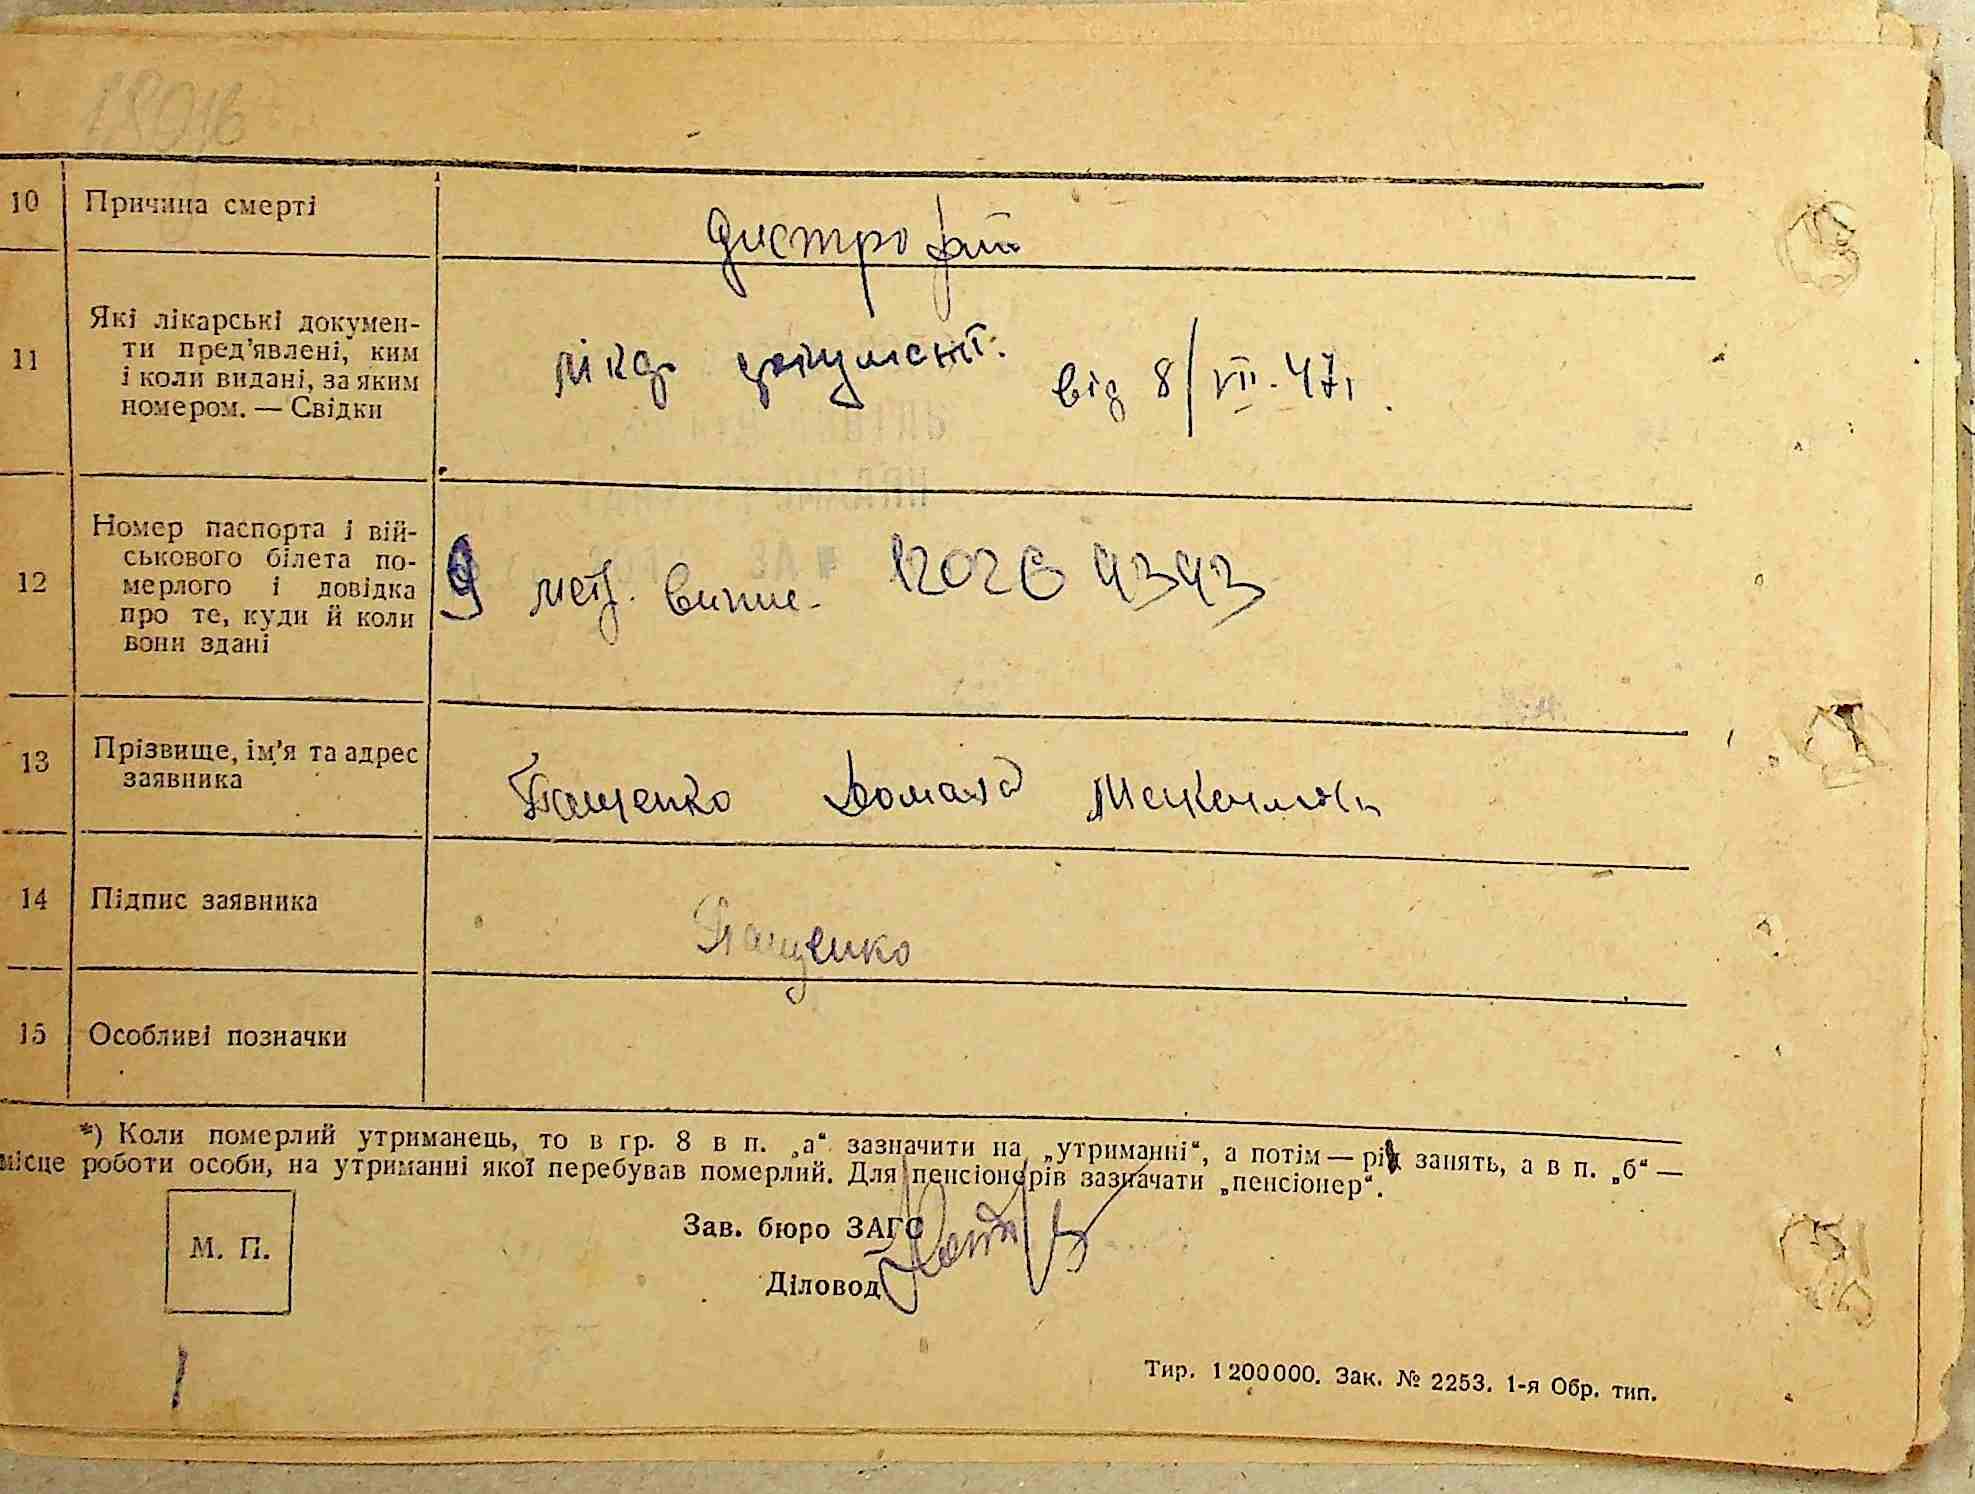 10 Причина смерті
дистрофія
11 Які лікарські докумен-
ти пред'явлені, ким
і коли видані, за яким
номером. — Свідки
лікар документ. від 8/VII. 47 г.
12 Номер паспорта і вій-
ськового білета по-
мерлого і довідка
про те, куди й коли
вони здані
13 Прізвище, ім'я та адрес
заявника
Пащенко
14 Підпис заявника
Пащенко
15 Особливі позначки
*) Коли померлий утриманець, то в гр. 8 в п. „а“ зазначити на „утриманні“, а потім — рід занять, а в п. „б“ —
місце роботи особи, на утриманні якої перебував померлий. Для пенсіонерів зазначати „пенсіонер“.
М. П.
Зав. бюро ЗАГС
Діловод
Тир. 1 200 000. Зак. № 2253. 1-я Обр. тип.